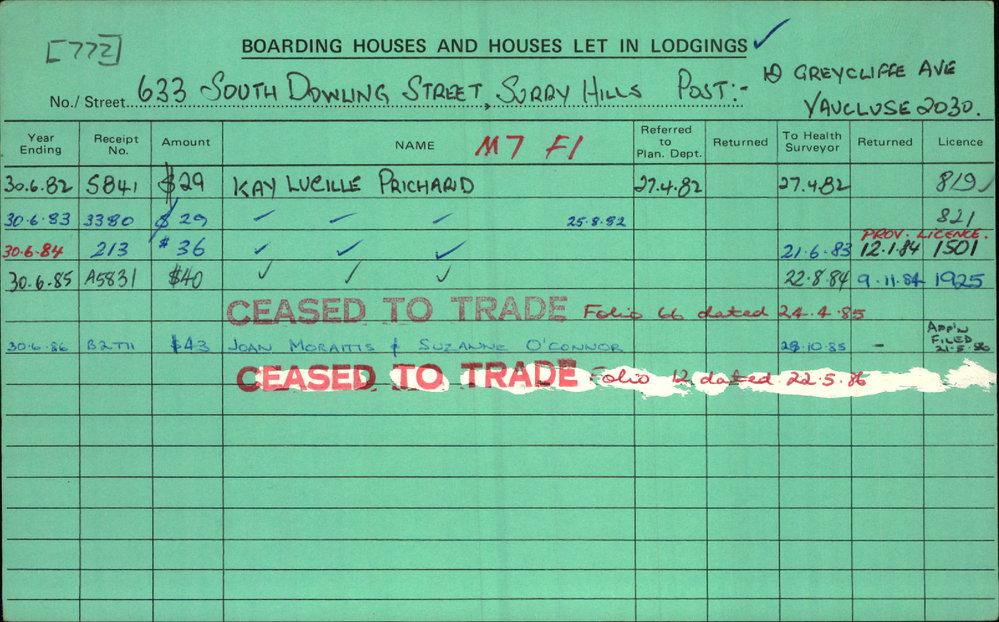 [772]
BOARDING HOUSES AND HOUSES LET IN LODGINGS ✓
No./ Street 633 SOUTH DOWLING STREET, SURRY HILLS POST:- 10 GREYCLIFFE AVE
VAUCLUSE 2030.
Year Ending Receipt No. Amount NAME M7 F1 Referred to Plan. Dept. Returned To Health Surveyor Returned Licence
30.6.82 5841 $29 KAY LUCILLE PRICHARD 27.4.82 27.4.82 819
30.6.83 3380 $29 ✓ ✓ ✓ 25.8.82 821
PROV. LICENCE.
30.6.84 213 $36 ✓ ✓ ✓ 21.6.83 12.1.84 1501
30.6.85 A5831 $40 ✓ ✓ ✓ 22.8.84 9.11.84 1925
CEASED TO TRADE Folio 66 dated 24.4.85
30.6.86 B2711 $43 JOAN MORAITIS & SUZANNE O'CONNOR 29.10.85 - APP'N FILED 21.5.86
CEASED TO TRADE Folio 12 dated 22.5.86